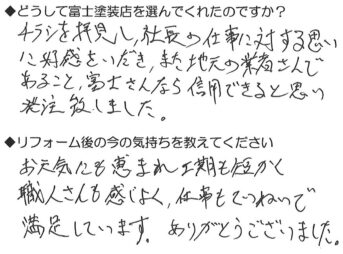 ◆どうして富士塗装店を選んでくれたのですか？
チラシを拝見し、社長の仕事に対する思い
に好感をいだき、また地元の業者さんで
あること、富士さんなら信用できると思い
発注致しました。
◆リフォーム後の今の気持ちを教えてください
お天気にも恵まれ工期も短かく
職人さんも感じよく、仕事もていねいで
満足しています。ありがとうございました。